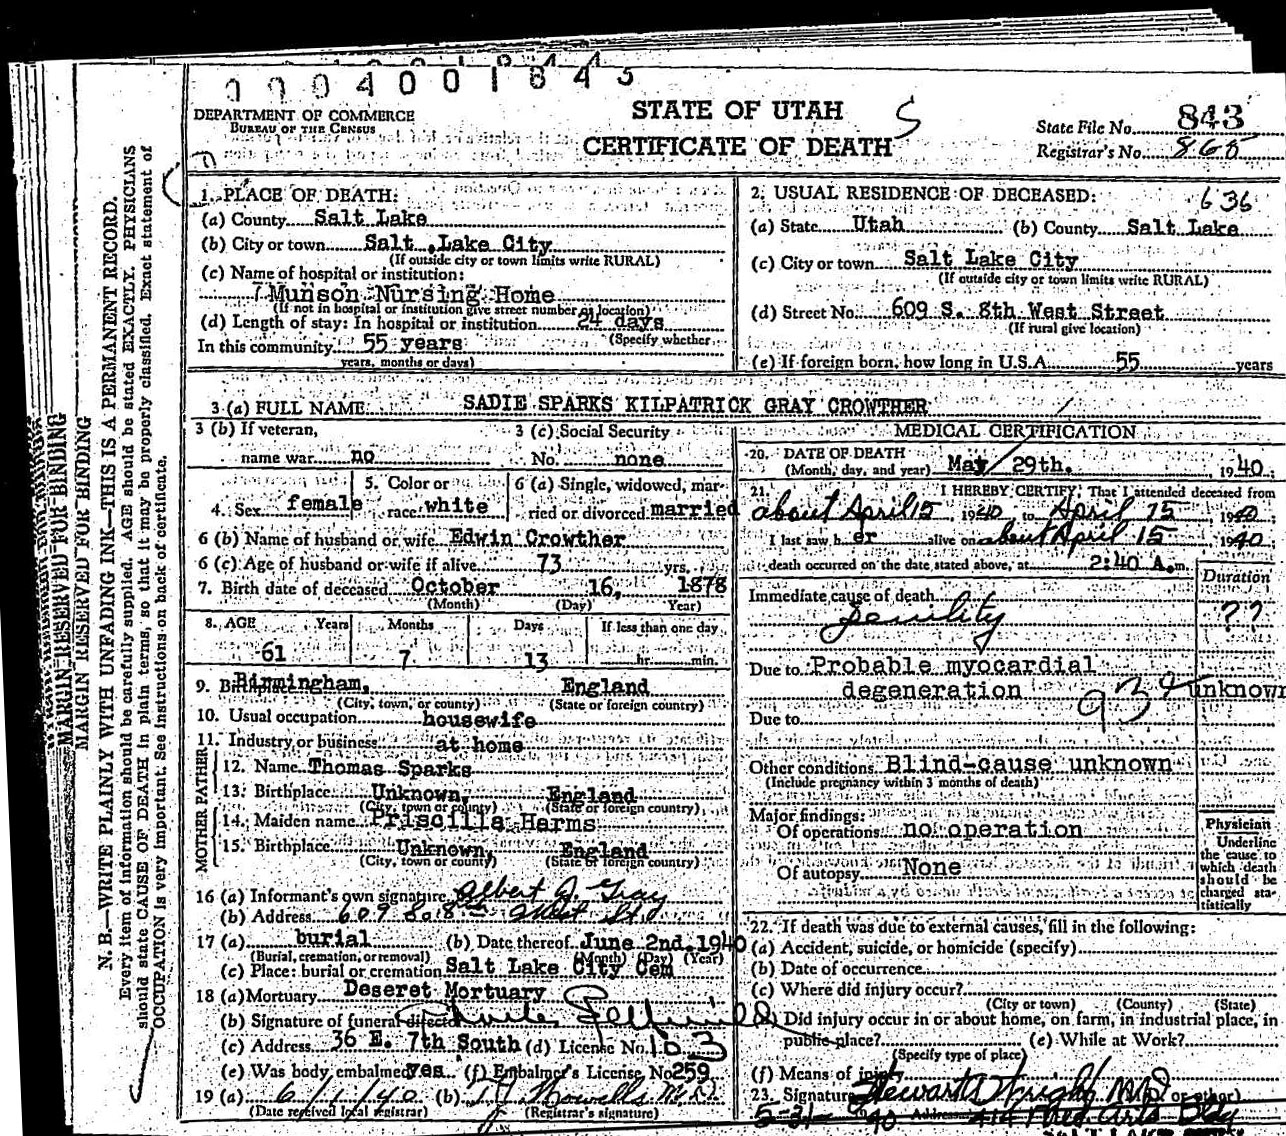 0004001845
DEPARTMENT OF COMMERCE
BUREAU OF THE CENSUS
STATE OF UTAH
CERTIFICATE OF DEATH
S
State File No. 843
Registrar's No. 865
MARGIN RESERVED FOR BINDING
MARGIN RESERVED FOR BINDING
N. B.—WRITE PLAINLY WITH UNFADING INK—THIS IS A PERMANENT RECORD.
Every item of information should be carefully supplied. AGE should be stated EXACTLY. PHYSICIANS
should state CAUSE OF DEATH in plain terms, so that it may be properly classified. Exact statement of
OCCUPATION is very important. See instructions on back of certificate.
1. PLACE OF DEATH:
(a) County Salt Lake
(b) City or town Salt Lake City
(If outside city or town limits write RURAL)
(c) Name of hospital or institution:
Munson Nursing Home
(If not in hospital or institution give street number or location)
(d) Length of stay: In hospital or institution 24 days
(Specify whether
In this community 55 years
years, months or days)
2. USUAL RESIDENCE OF DECEASED: 636
(a) State Utah (b) County Salt Lake
(c) City or town Salt Lake City
(If outside city or town limits write RURAL)
(d) Street No. 609 S. 8th West Street
(If rural give location)
(e) If foreign born, how long in U.S.A. 55 years
3 (a) FULL NAME SADIE SPARKS KILPATRICK GRAY CROWTHER
3 (b) If veteran, 3 (c) Social Security
name war no No. none
4. Sex female 5. Color or race white 6 (a) Single, widowed, married or divorced married
6 (b) Name of husband or wife Edwin Crowther
6 (c) Age of husband or wife if alive 73 yrs.
7. Birth date of deceased October 16, 1878
(Month) (Day) Year)
8. AGE Years Months Days If less than one day
61 7 13 hr. min.
9. Birthplace Birmingham, England
(City, town, or county) (State or foreign country)
10. Usual occupation housewife
11. Industry or business at home
FATHER
12. Name Thomas Sparks
13. Birthplace Unknown, England
(City, town or county) (State or foreign country)
MOTHER
14. Maiden name Priscilla Harms
15. Birthplace Unknown, England
(City, town or county) (State or foreign country)
16 (a) Informant's own signature Albert J. Gray
(b) Address 609 So. 8th West St.
17 (a) burial (b) Date thereof June 2nd, 1940
(Burial, cremation, or removal) (Month) (Day) (Year)
(c) Place: burial or cremation Salt Lake City Cem
18 (a) Mortuary Deseret Mortuary
(b) Signature of funeral director Charles
(c) Address 36 E. 7th South (d) License No. 163
(e) Was body embalmed yes (f) Embalmer's License No. 259
19 (a) 6/1/40 (b) M.D.
(Date received local registrar) (Registrar's signature)
MEDICAL CERTIFICATION
20. DATE OF DEATH
(Month, day, and year) May 29th. 1940
21. I HEREBY CERTIFY, That I attended deceased from
about April 15 1940 to April 15 1940
I last saw her alive on about April 15 1940
death occurred on the date stated above, at 2:40 A.m.
Duration
Immediate cause of death
Senility ??
Due to Probable myocardial
degeneration 93d unknown
Due to
Other conditions Blind-cause unknown
(Include pregnancy within 3 months of death)
Major findings:
Of operations no operation
Of autopsy None
Physician
Underline
the cause to
which death
should be
charged sta-
tistically
22. If death was due to external causes, fill in the following:
(a) Accident, suicide, or homicide (specify)
(b) Date of occurrence
(c) Where did injury occur?
(City or town) (County) (State)
(d) Did injury occur in or about home, on farm, in industrial place, in
public place? (e) While at Work?
(Specify type of place)
(f) Means of injury
23. Signature Stewart Wright MD (M.D. or other)
5-31-40 Address 414 Med Arts Bldg